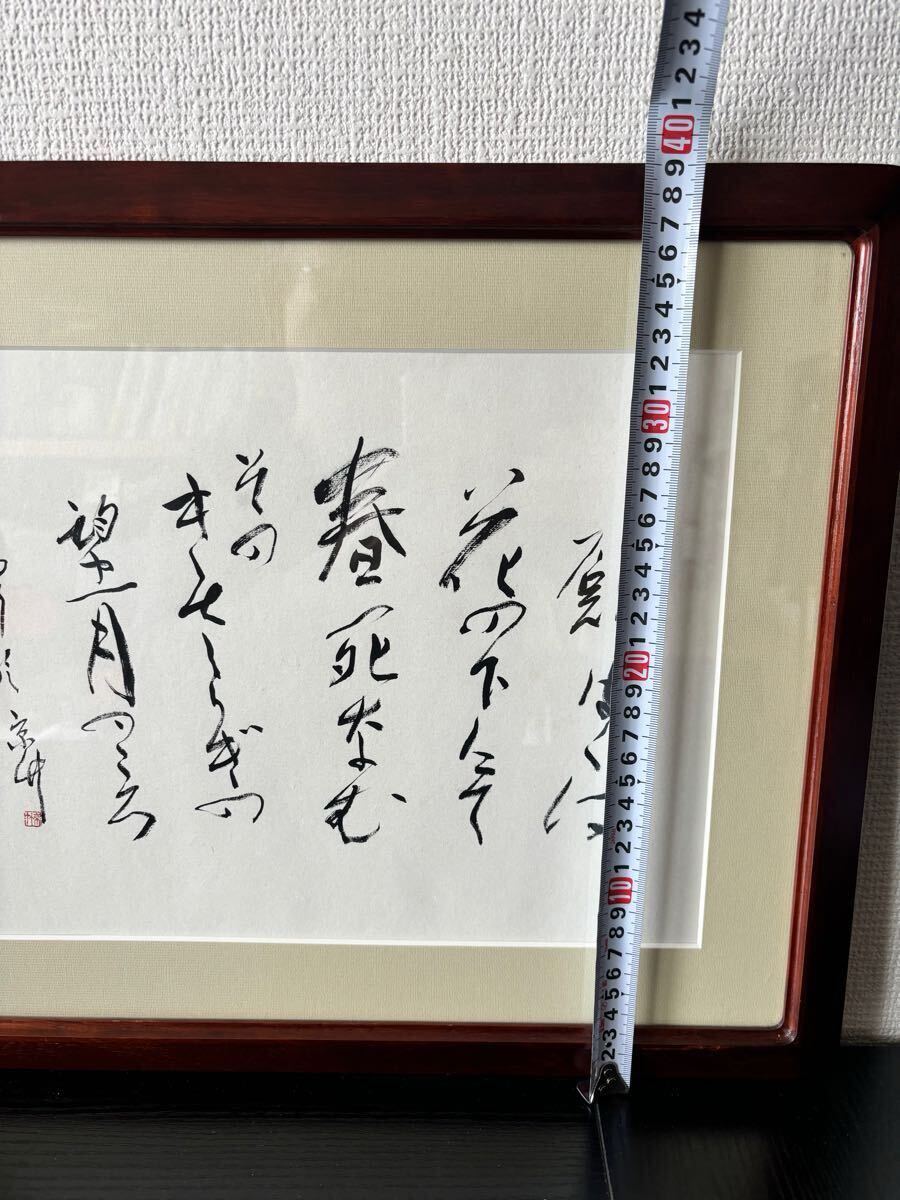 願はくは
花の下にて
春死なむ
その
きさらぎの
望月のころ
2 3 4 5 6 7 8 9 10 1 2 3 4 5 6 7 8 9 20 1 2 3 4 5 6 7 8 9 30 1 2 3 4 5 6 7 8 9 40 1 2 3 4